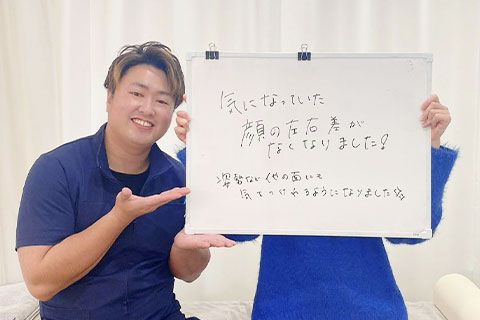 気になっていた
顔の左右差が
なくなりました!
姿勢などの面にて
気をつけれるようになりました